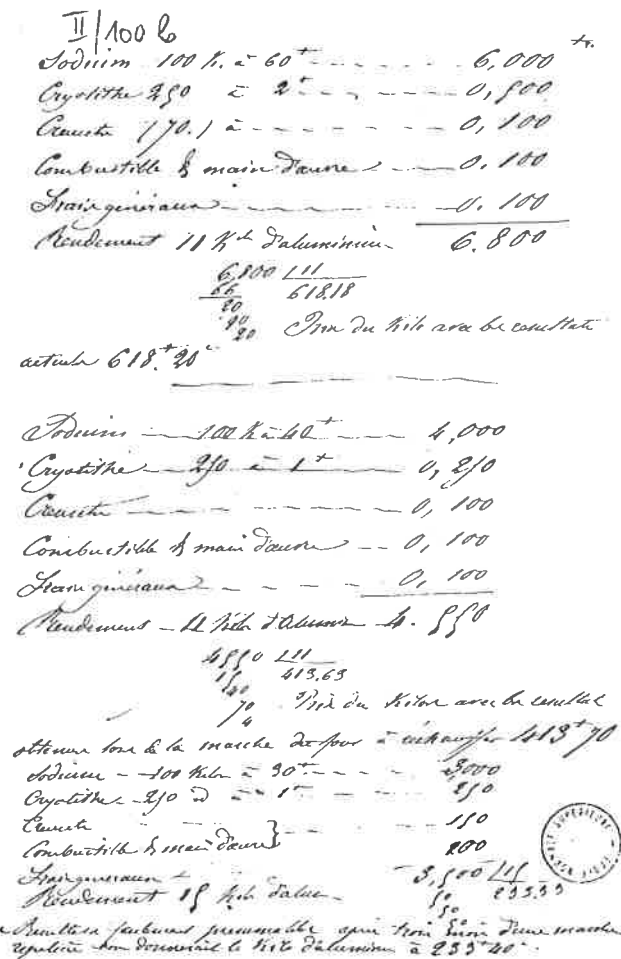 II/100 b
fr.
Sodium 100 K. à 60 f - - - - 6,000
Cryolithe 250 à 2 f - - - - 0,500
Creusets (70.) à - - - - - 0,100
Combustible & main d'œuvre - - - 0.100
Frais généraux - - - - 0.100
Rendement 11 Kil d'aluminium 6.800
6,800 11
66 618.18
20
90
20 Prix du Kilo avec les résultats
actuels 618.f 20 c
Sodium - 100 K à 40 f - - - 4,000
Cryolithe - 250 à 1 f - - - 0,250
Creusets - - - - 0,100
Combustible & main d'œuvre - - 0,100
Frais généraux - - - - 0,100
Rendement - 11 Kilos d'Alumin 4.550
4550 11
15 413.63
40
70 Prix du Kilo avec les résultats
4
obtenus lors de la marche du four à réchauffer 413 f 70
Sodium - 100 Kilos à 30 f - - - 3,000
Cryolithe - 250 id à 1 f - - 250
Creusets - - - 150
Combustible & main d'œuvre - - - 200
Frais généraux - 3,500 15
Rendement 15 Kilos d'alum - 50 233.33
50
50
Résultats présumable après trois mois d'une marche
régulière donnerait le Kilo d'aluminium à 233 f 40 c